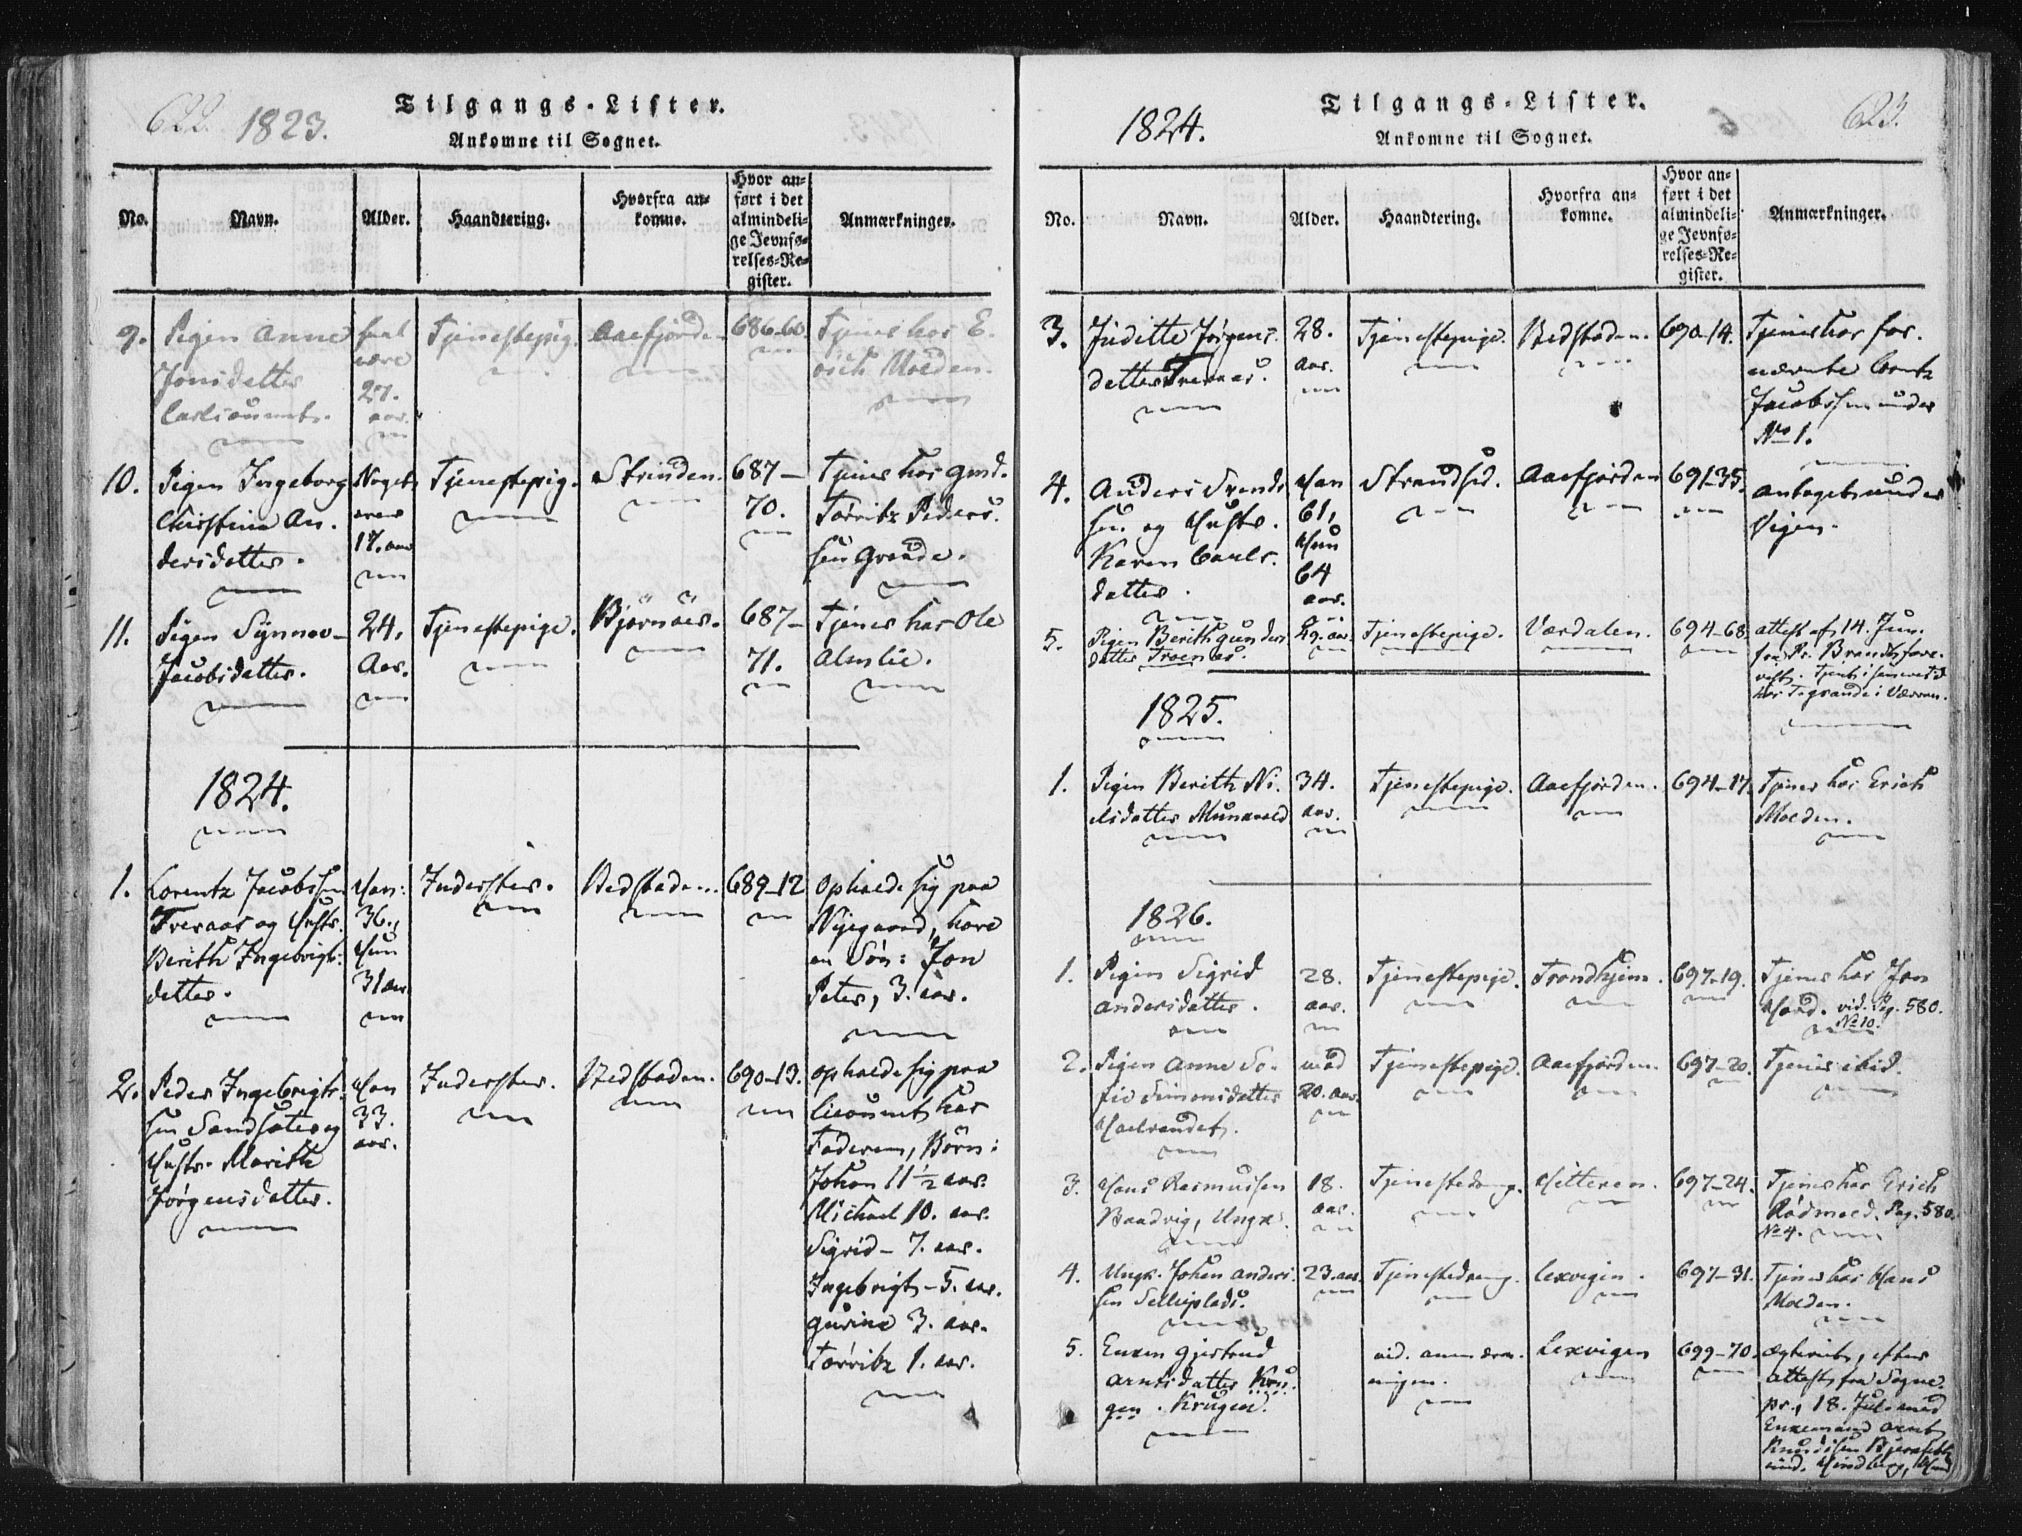 622.
1823.
Tilgangs-Lister.
Ankomne til Sognet.
No.
Navn.
Alder.
Haandtering.
Hvorfra an-
komne.
Hvor an-
ført i det
almindeli-
ge Jevnfø-
relses-Re-
gister.
Anmærkninger.
9.
Pigen Anne
Jonsdatter
27.
aar.
Tjenestepig.
Aaefjorde
686-60
Tjener hos E-
rich Molden.
10.
Pigen Ingeborg
Christine An-
dersdatter.
Noget
over
17. aar
Tjenestepig.
Strinden.
687-
70.
Tjener hos Gmd.
Tørritz Peders-
sen Grande.
11.
Pigen Synnov-
Jacobsdatter.
24.
Aar.
Tjenestepige.
Bjørnöer.
687-
71.
Tjener hos Ole
Almlie.
1824.
1.
Lorentz Jacobsen
Treraas og Hustr.
Berith Ingebrigts-
datter.
Han:
36.
Hun
31 aar
Inderster.
Bedstaden.
689-12
Opholde sig paa
Nyegaard, have
en Søn: Jon
Peter, 3. aar.
2.
Peder Ingebrigts-
sen Sandsater og
Hustr. Marith
Jørgensdatter.
Han
33.
aar.
Inderster.
Bedstaden.
690-13.
opholde sig paa
hos
Faderen, Børn:
Johan 11½ aar.
Michael 10. aar.
Sigrid - 7. aar.
Ingebrigt - 5. aar.
Gurine 3. aar.
Tørritz 1. aar.
623.
1824.
Tilgangs-Lister.
Ankomne til Sognet.
No.
Navn.
Alder.
Haandtering.
Hvorfra an-
komne.
Hvor an-
ført i det
almindeli-
ge Jevnfø-
relses-Re-
gister.
Anmærkninger.
3.
Juditte Jørgens-
datter Treraas.
28.
aar.
Tjenestepige.
Bedstaden.
690-14.
Tjener hos for-
nævnte Lorentz
Jacobsen under
No 1.
4.
Anders Svend-
sen og Hustr.
Karen Carls-
datter.
Han
61,
Hun
64
aar.
Strandsid.
Aaefjorden
691-35.
antaget under
Vejen.
5.
Pigen Berith Gunders
datter Troenæs.
29. aar.
Tjenestepige.
Værdalen.
694-68.
attest af 14. Jun.
fra Pr. Brandt
hos T. Grande i
1825.
1.
Pigen Berith Ni-
elsdatter Munkvold
34.
aar.
Tjenestepige.
Aaefjorden.
694-17.
Tjener hos Erich
Molden.
1826.
1.
Pigen Sigrid
Andersdatter.
28.
aar.
Tjenestepige.
Trondhjem.
697-19.
Tjener hos Jon
vid. Pag. 580.
No 10.
2.
Pigen Anne So-
fie Simonsdatter
20. aar.
Tjenestepige.
Aaefjorden.
697-20.
Tjener ibid.
3.
Hans Rasmussen
Baadvig, Ungk.
18.
aar.
Tjenestedreng.
Hitteren.
697-24.
Tjener hos Erich
Rødmoed. Pag. 580.
No 4.
4.
Ungk. Johan Anders-
sen Selliplads.
23. aar.
Tjenestedreng.
Lexvigen.
697-31.
Tjener hos Hans
Molden.
5.
Enken Gjertrud
Arntsdatter Krü-
gen. Krügen.
vid. anmærk-
ningen.
Lexvigen
699-70.
ægteviet, efter
Attest fra Sogne-
pr., 18. Jul. med
Enkemand Arnt
Knudsen